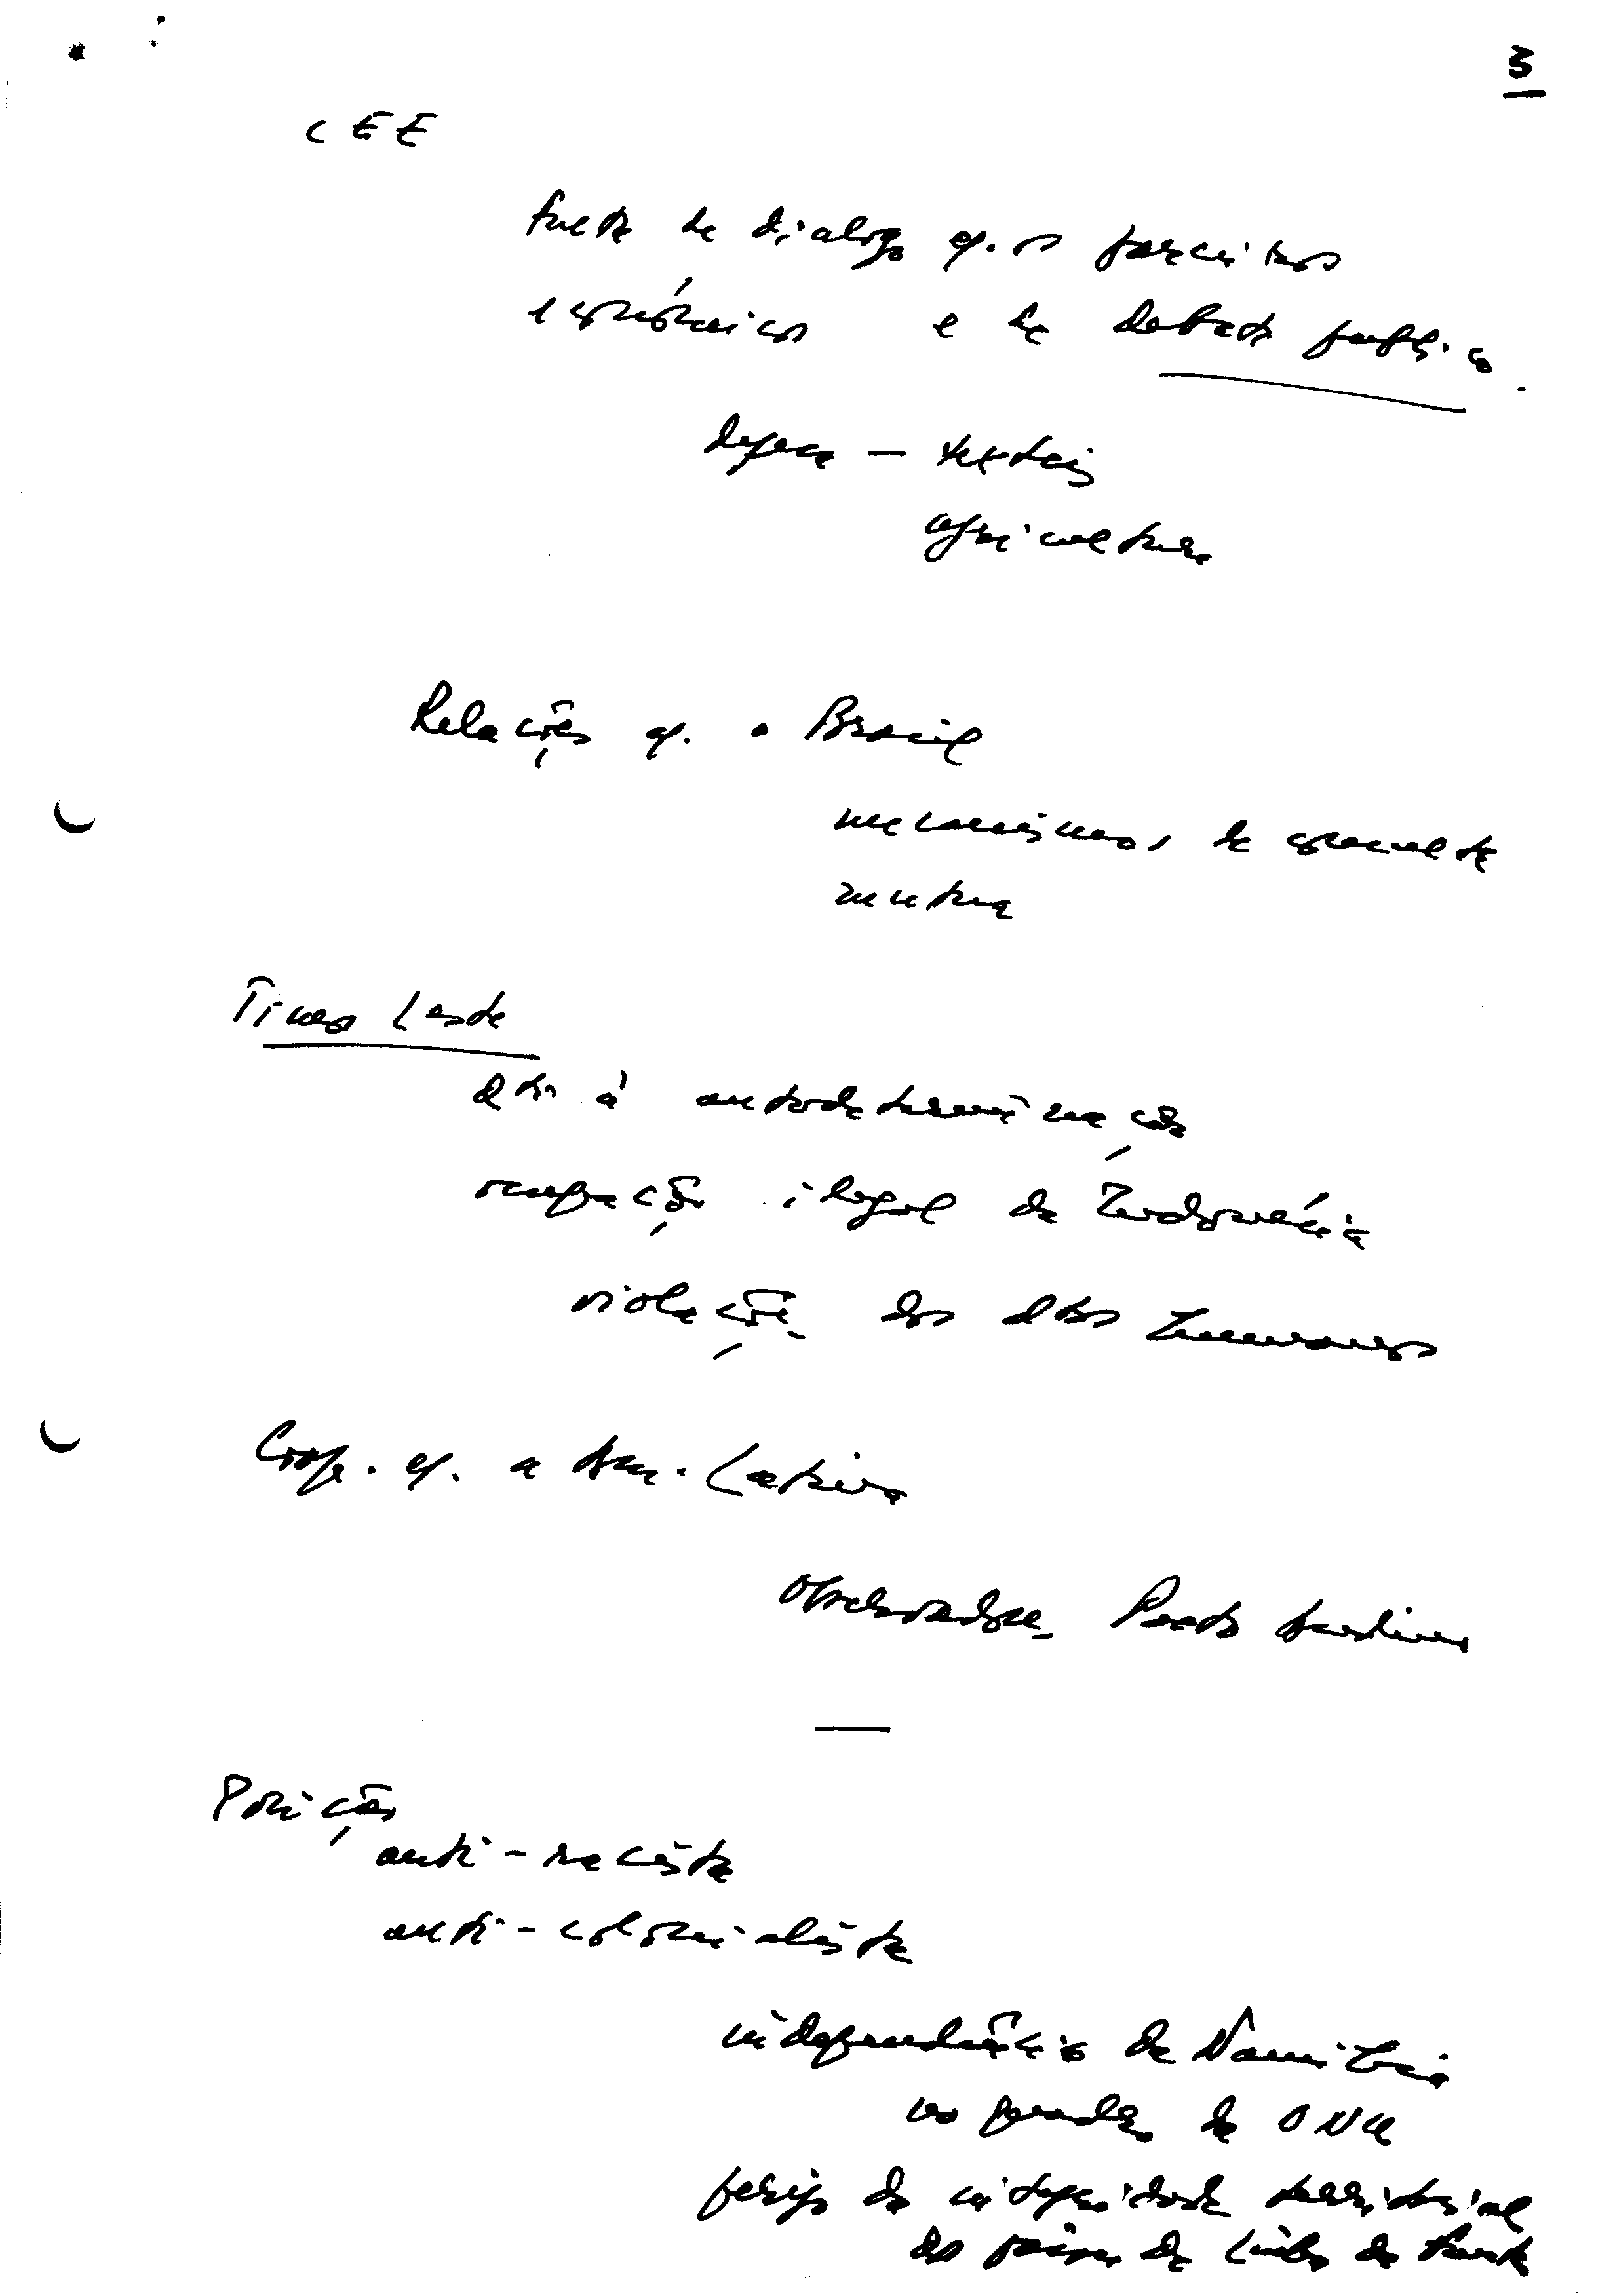 3
CEE
falta de dialogo c/. os parceiros
económicos e de debate publico.
defesa — texteis
agricultura
Relações c/. o Brasil
mecanismos, de consulta
mutua
Timor Leste
dto à autodeterminação
ocupação ilegal da Indonésia
violação dos dtos humanos
Coop. c/. a Am. Latina
Observador Pacto Andino
Posição
anti-racista
anti-colonialista
independência da Namibia
no quadro da ONU
da integridade territorial
dos países da Linha da Frente